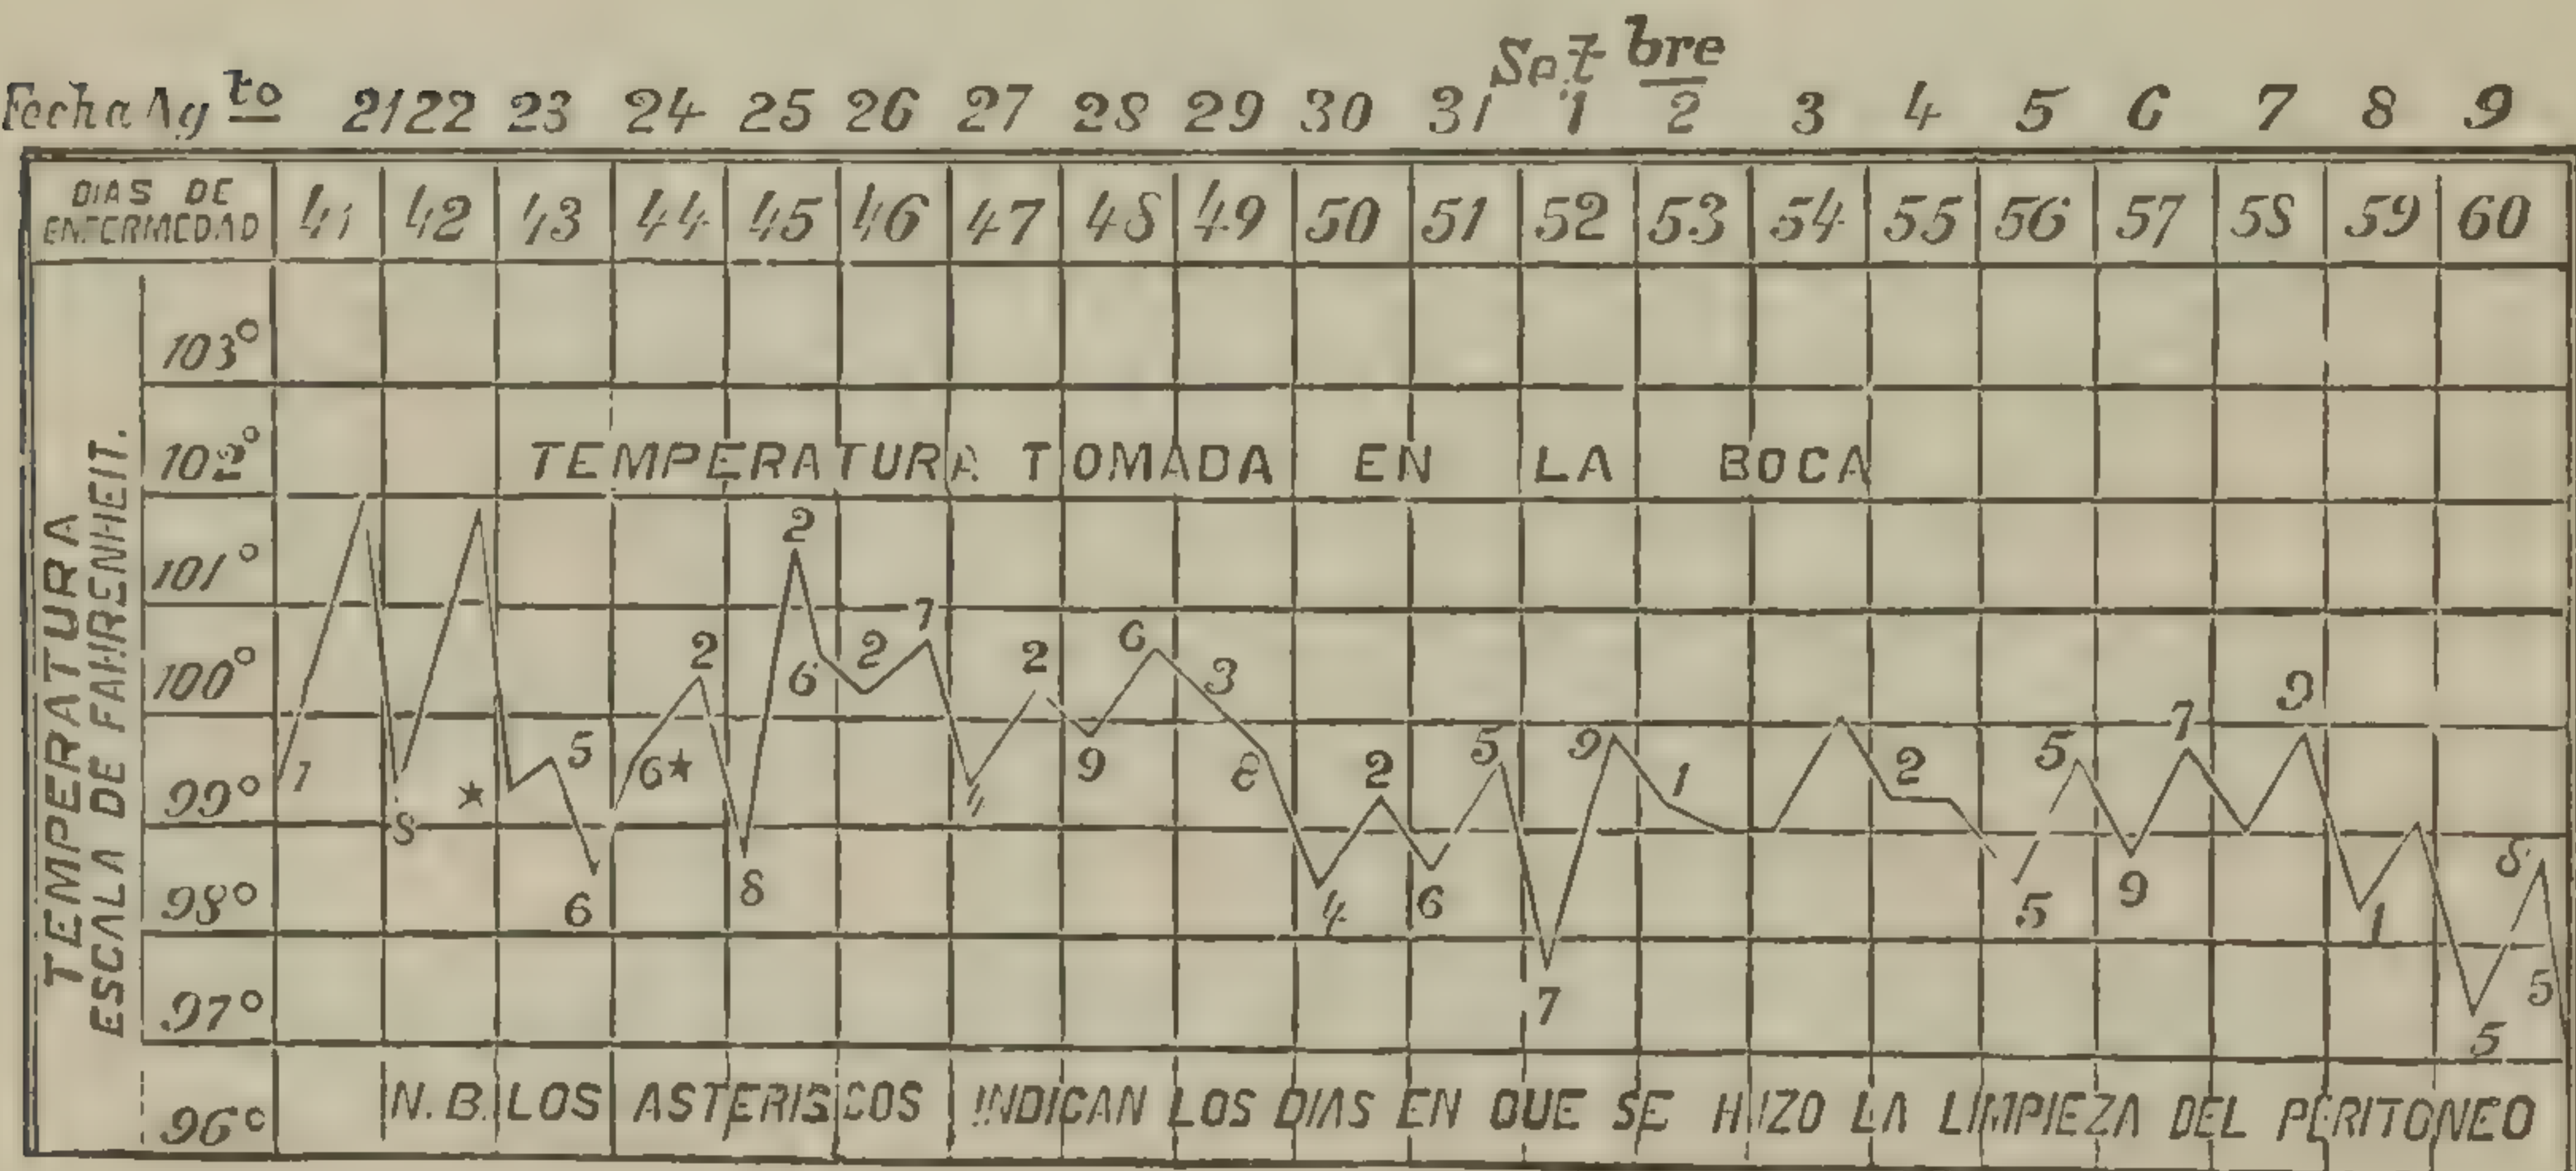 Fecha Ag to 21 22 23 24 25 26 27 28 29 30 31 Set bre 1 2 3 4 5 6 7 8 9
DIAS DE ENFERMEDAD 41 42 43 44 45 46 47 48 49 50 51 52 53 54 55 56 57 58 59 60
TEMPERATURA
ESCALA DE FAHRENHEIT.
103°
102° TEMPERATURA TOMADA EN LA BOCA
2
101°
7
2 6 2 2 6 3
100°
9
7
5 9 5
1 5 6★ 9 8 2 1 2
99° ★
8
8
98° 6 8 4 6 5 9 1
5
97° 7
5
96° N.B. LOS ASTERISCOS INDICAN LOS DIAS EN QUE SE HIZO LA LIMPIEZA DEL PERITONEO